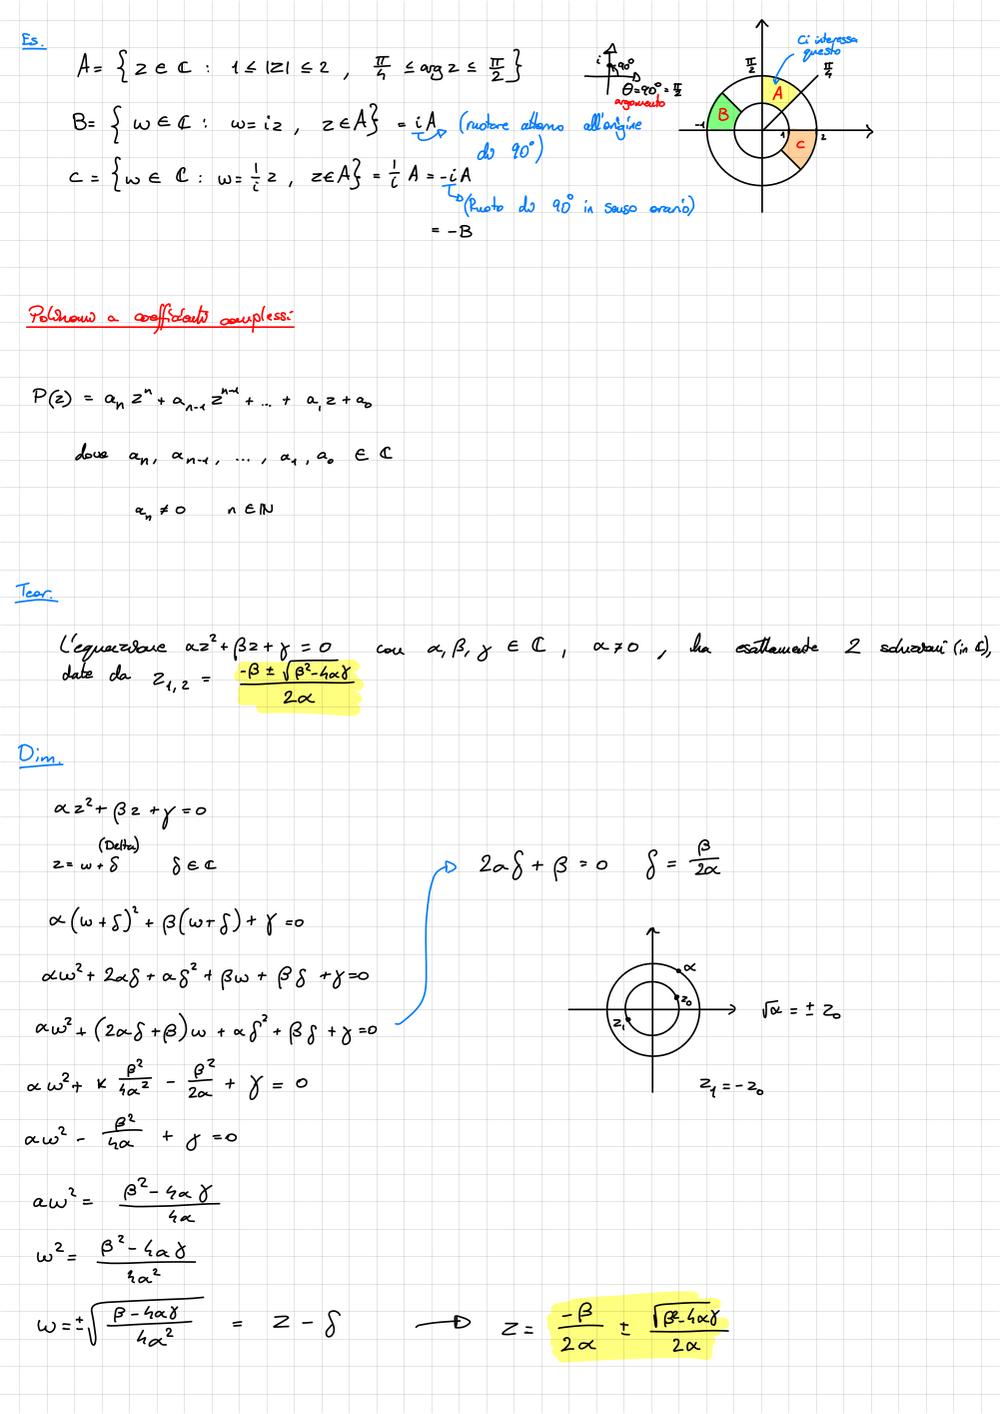 Es.
A = { z ∈ ℂ : 1 ≤ |z| ≤ 2 , π/4 ≤ arg z ≤ π/2 }
B = { w ∈ ℂ : w = iz , z ∈ A } = iA (ruotare attorno all'origine
di 90°)
C = { w ∈ ℂ : w = 1/i z , z ∈ A } = 1/i A = -iA
(Ruoto di 90° in senso orario)
= -B
i 90°
θ = 90° = π/2
argomento
Ci interessa
questo
π/2 π/4
A
B
C
-1 1 2
Polinomi a coefficienti complessi
P(z) = aₙ zⁿ + aₙ₋₁ zⁿ⁻¹ + ... + a₁ z + a₀
dove aₙ, aₙ₋₁, ..., a₁, a₀ ∈ ℂ
aₙ ≠ 0 n ∈ ℕ
Teor.
L'equazione αz² + βz + γ = 0 con α, β, γ ∈ ℂ , α ≠ 0 , ha esattamente 2 soluzioni (in ℂ),
date da z₁,₂ = (-β ± √(β²-4αγ))/2α
Dim.
αz² + βz + γ = 0
(Delta)
z = w + δ δ ∈ ℂ
α(w+δ)² + β(w+δ) + γ = 0
αw² + 2αδ + αδ² + βw + βδ + γ = 0
αw² + (2αδ+β)w + αδ² + βδ + γ = 0
2αδ + β = 0 δ = β/2α
αw² + α β²/4α² - β²/2α + γ = 0
αw² - β²/4α + γ = 0
aw² = (β²-4αγ)/4α
w² = (β²-4αγ)/4α²
w = ±√((β-4αγ)/4α²) = z - δ → z = -β/2α ± √(β²-4αγ)/2α
α
z₀
z₁
√α = ± z₀
z₁ = -z₀